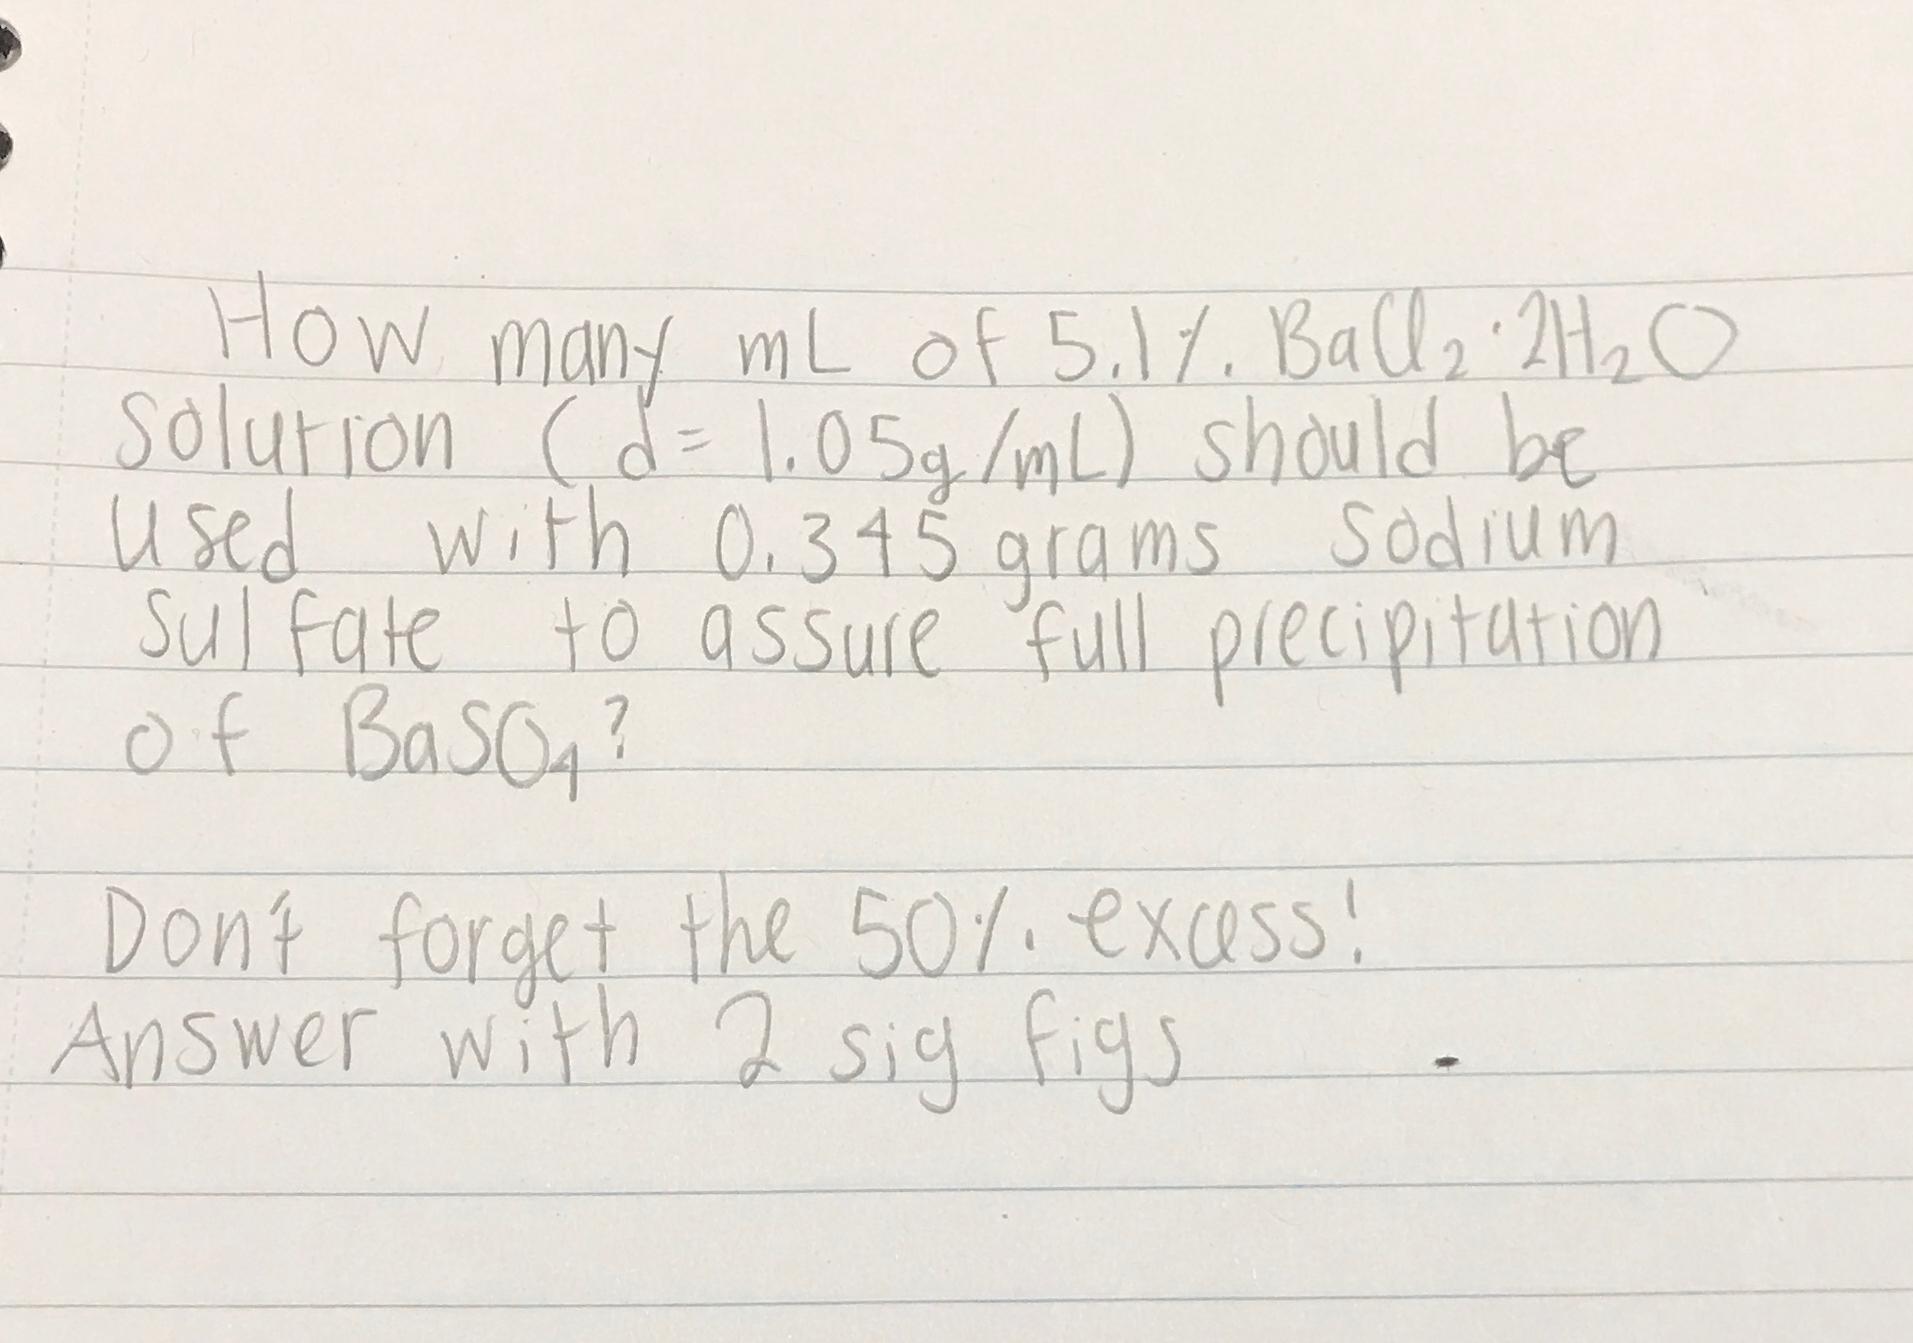 How many mL of 5.1% BaCl₂·2H₂O
solution (d= 1.05g/mL) should be
used with 0.345 grams sodium
sulfate to assure full precipitation
of BaSO₄?
Don't forget the 50% excess!
Answer with 2 sig figs